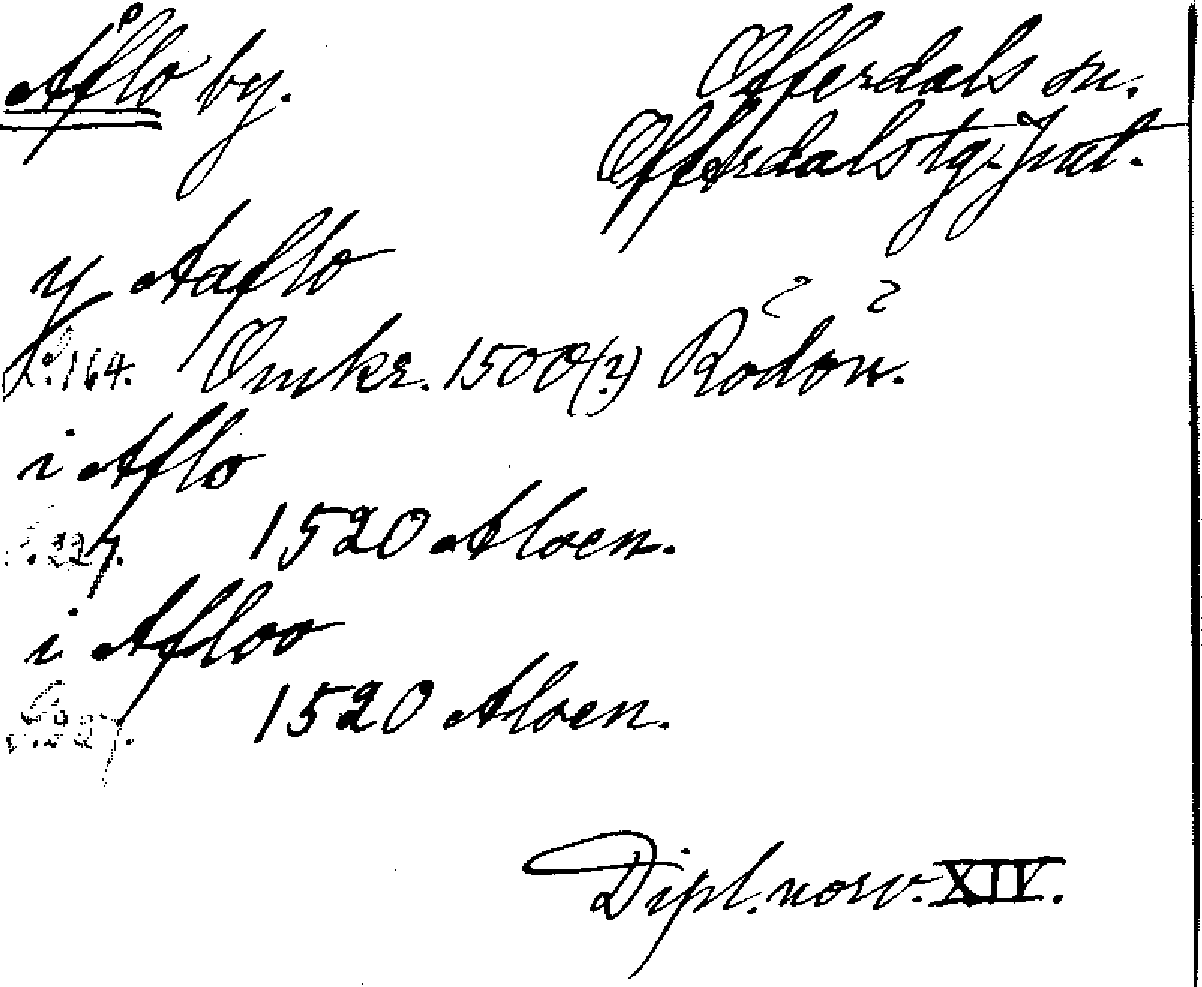 Åflo by.
Offerdals sn.
Offerdals tg. Jmtl.
y Aaflo
S. 164. Omkr. 1500 (?) Rödön.
i Aflo
S. 227. 1520 Aloen.
i Afloo
S. 227. 1520 Aloen.
Dipl. norv. XIV.